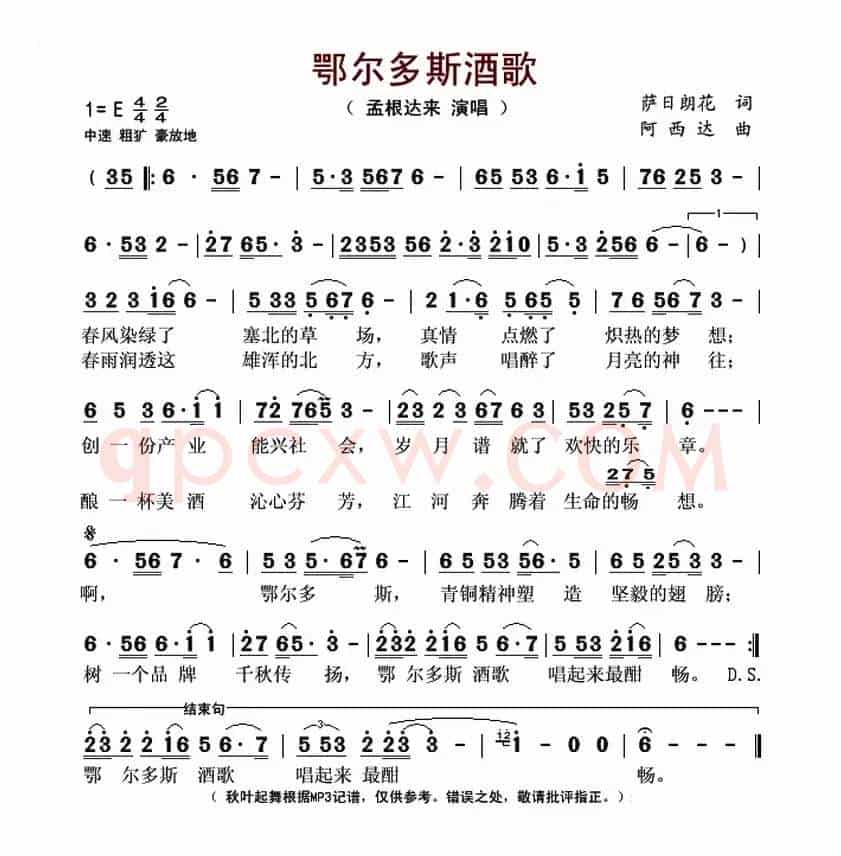 鄂尔多斯酒歌
1=E 4/4 2/4
( 孟根达来 演唱 )
萨日朗花 词
中速 粗犷 豪放地
阿西达 曲
( 35 ‖: 6 · 56 7 - | 5·3 567 6 - | 65 53 6·1 5 | 76 25 3 - |
1
6 · 53 2 - | 27 65· 3 - | 2353 56 2·3 210 | 5·3 256 6 - | 6 - ) |
3 2 3 16 6 - | 5 33 5 67 6 - | 2 1·6 5 65 5 | 7 6 56 7 3 - |
春风染绿了 塞北的草 场, 真情 点燃了 炽热的梦 想;
春雨润透这 雄浑的北 方, 歌声 唱醉了 月亮的神 往;
6 5 3 6·1 1 | 72 765 3 - | 23 2 3 67 63 | 53 25 7 | 6 - - - |
创一份产业 能兴社 会, 岁月谱就了 欢快的乐 章。
27 5
酿一杯美酒 沁心芬 芳, 江河奔腾着 生命的畅 想。
6 · 56 7 · 6 | 5 3 5·67 6 - | 6 5 53 56· 5 | 6 5 25 3 3 - |
啊, 鄂尔多 斯, 青铜精神塑 造 坚毅的翅 膀;
6 · 56 6·1 1 | 27 65· 3 - | 23 2 16 5 6·7 | 5 53 2 16 | 6 - - - :‖
树一个品牌 千秋传 扬, 鄂尔多斯酒歌 唱起来最酣 畅。 D.S.
结束句
23 2 16 5 6·7 | 5 53 2 23 3 - | 12 1 - 0 0 | 6 - - - ‖
3
鄂尔多斯 酒歌 唱起来 最酣 畅。
( 秋叶起舞根据MP3记谱,仅供参考。错误之处,敬请批评指正。)
qpcxw.com